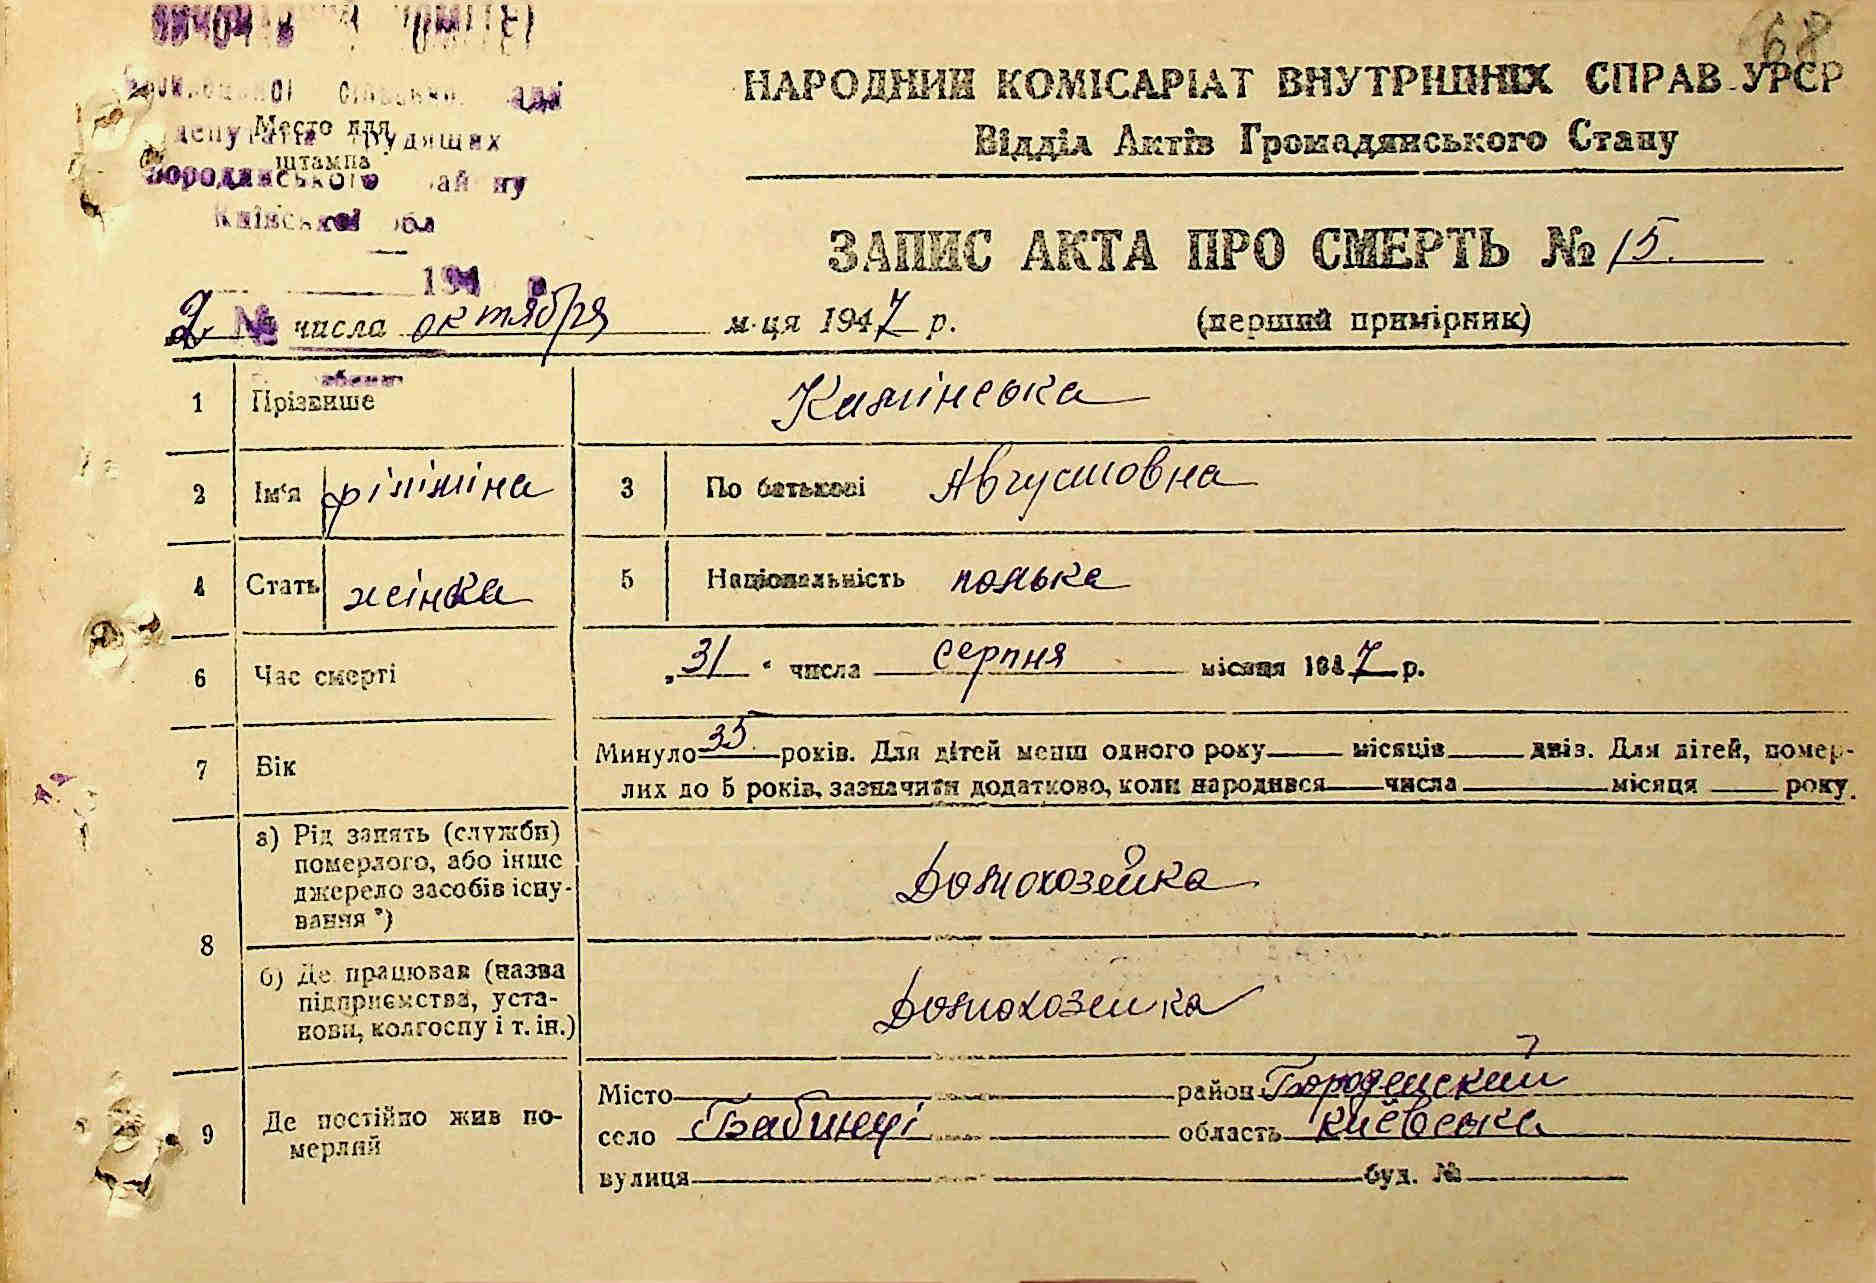 68
НАРОДНИЙ КОМІСАРІАТ ВНУТРІШНІХ СПРАВ УРСР
Відділ Актів Громадянського Стану
Место для штампа
депутатів трудящих
Бородянського району
Київської обл
194 р
ЗАПИС АКТА ПРО СМЕРТЬ № 15.
2 № числа октября м-ця 1947 р. (перший примірник)
1 Прізвище Камінська
2 Ім'я філіміна 3 По батькові Августовна
4 Стать жінка 5 Національність полька
6 Час смерті „31" числа серпня місяця 1947 р.
7 Вік Минуло 35 років. Для дітей менш одного року місяців днів. Для дітей, помер-
лих до 5 років, зазначити додатково, коли народився числа місяця року.
8 а) Рід занять (служби)
померлого, або інше
джерело засобів існу-
вання *)
Домохозейка
б) Де працював (назва
підприємства, уста-
нови, колгоспу і т. ін.)
Домохозейка
9 Де постійно жив по-
мерлий
Місто район Бородецкий
село Бабинці область Киевська
вулиця буд. №